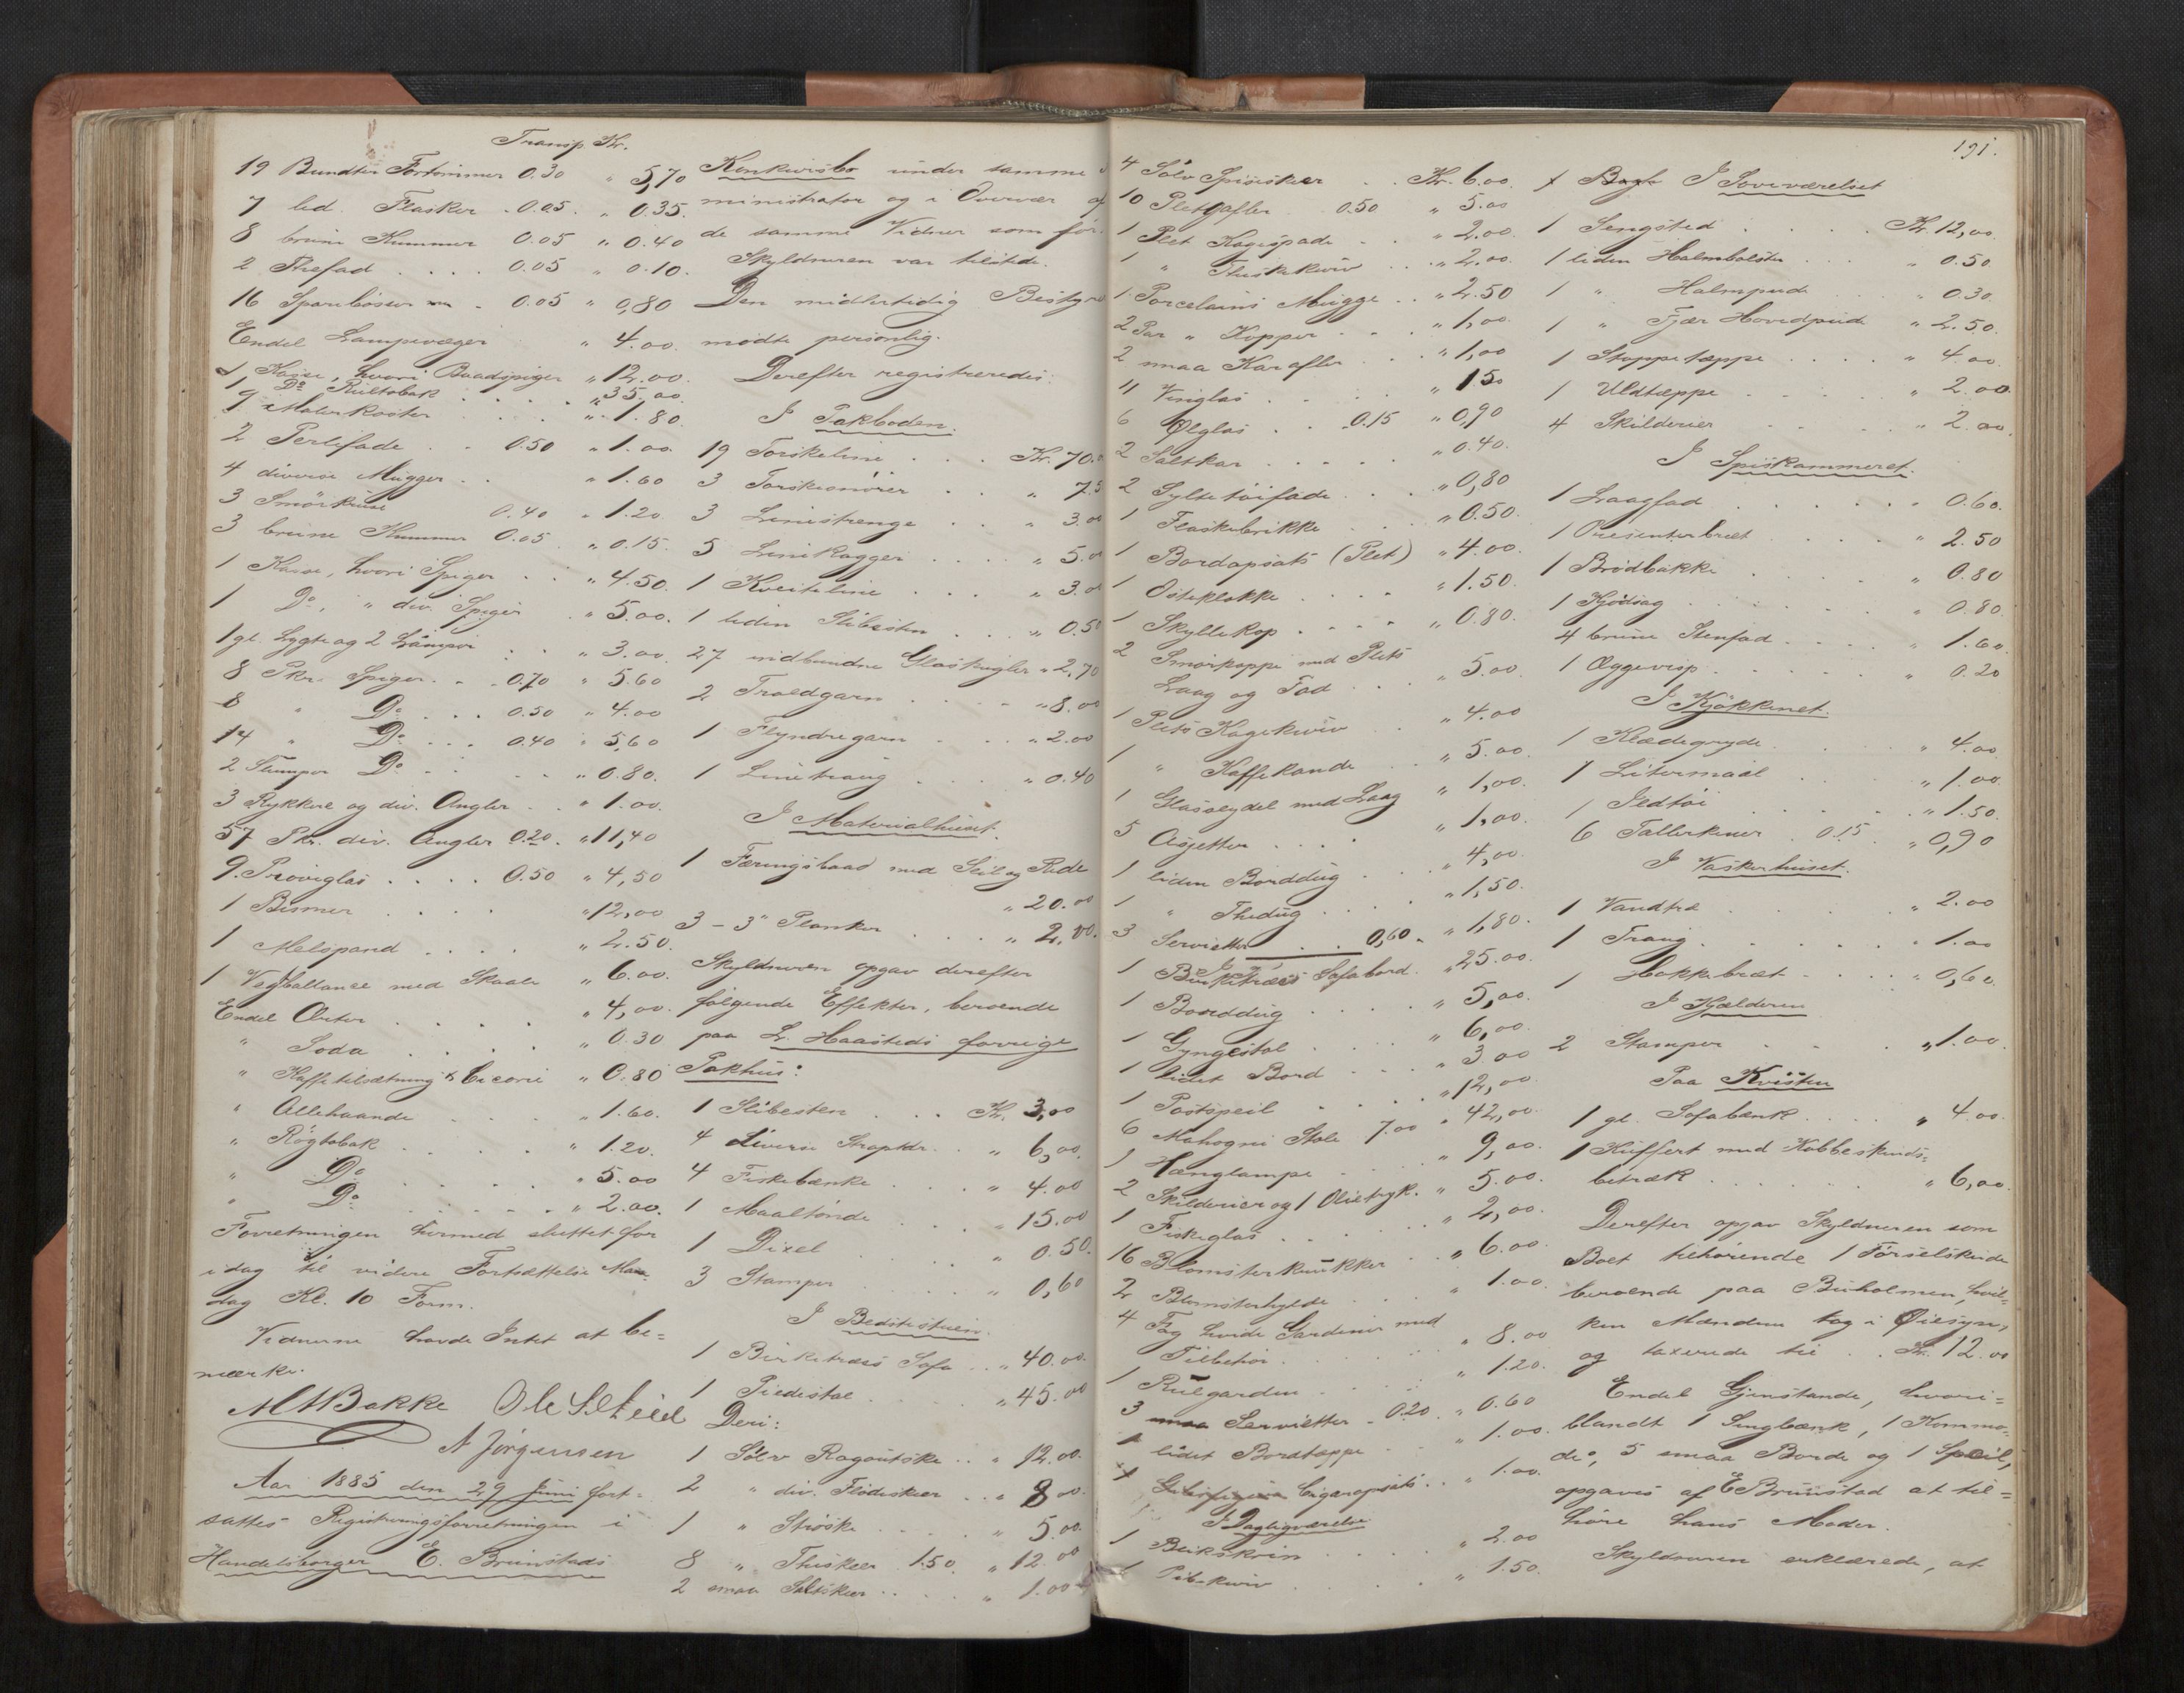 Transp. Kr.
19 Bundter Fortommer 0.30 " 5,70
7 led. Flasker . 0.05 . " 0.35.
8 brune Kummer 0.05 " 0.40
2 Thefad . . . . 0.05 " 0.10.
16 Sparebøsser . 0.05 " 0,80
Endel Lampevæger " 4.00.
1 Kasse, hvori Baadspiger " 12.00.
1 Do Rultobak . . . . " 35.00.
9 Malerkoster . . . " 1.80.
2 Perlefade . . 0.50 " 1.00
4 diverse Mugger . . " 1.60
3 Smørkruse 0.40 " 1.20
3 brune Kummer 0.05 " 0.15.
1 Kasse, hvori Spiger . . " 4.50.
1 Do, " div. Spiger " 5.00.
1 gl. Lygte og 2 Lamper . . " 3.00
8 Pkr. Spiger . . 0.70 " 5.60
8 " Do . . . 0.50 " 4.00
14 " Do . . . 0.40 " 5,60
2 Slumper Do . . . " 0.80.
3 Rykkere og div. Angler . . " 1.00.
57 Pkr. div. Angler 0.20 . " 11,40
9. Prøveglas . . . . 0.50 " 4,50
1 Bismer . . . . " 12,00
1 Melspand . . . . " 2.50.
1 Vegballance med Skaale " 6.00.
Endel Erter . . . . " 4,00.
" Soda . . . . " 0.30
" Kaffetilsætning & Cicorie " 0.80
" Allehaande . . " 1.60.
" Røgtobak . . . . " 1.20.
" Do . . . . " 5.00
" Do . . . . " 2.00.
Forretningen hermed sluttet for
idag til videre Fortsættelse Man-
dag Kl. 10 Form.
Vidnerne havde Intet at be=
mærke.
N Jörgensen
Aar 1885 den 29 Juni fort-
sattes Registreringsforretningen i
Handelsborger E. Brunstads
Konkursbo under samme
ministrator og i Overvær
de samme Vidner som før.
Skyldneren var tilstede.
Den midlertidig Bestyre
mødte personlig.
Derefter registreredes:
I Pakboden.
19 Torskeline . . . Kr. 70.
3 Torskesnører . . " 7.5
3 Linestrenge . . " 3.00
5 Linekagger . . . " 5.0
1 Kveiteline . . . " 3.00
1 liden Slibesten . . . " 0.50
27 indbundne Glaskugler " 2,70
2 Troldgarn . . . . " 8.00
1 Flyndregarn . . . " 2.00
1 Linetraug . . " 0.40
I Materialhuset.
1 Færingsbaad med Seil og Rede
" 20.00
3 - 3" Planker . . . " 2,00.
Skyldneren opgav derefter
følgende Effekter, beroende
paa L. Haasteds forrige
Pakhus:
1 Slibesten . . . Kr. 3,00
4 diverse . . " 6,00.
4 Fiskebænke . . . " 4.00
1 Maaltønde . . . " 15.00
1 Dixel . . . " 0.50.
3 Stamper . . . . " 0,60
I Bedstestuen.
1 Birketræs Sofa . . " 40.00.
1 Piedestal . . . . " 45.00
Deri:
1 Sølv Ragoutske . . " 12.00.
2 " div. Flødeskeer . . " 8.00.
1 " Strøske . . . . " 5.00.
8 " Theskeer 1.50. " 12.00
2 smaa Saltskeer . . . . " 1.00
191.
4 Sølv Spiseskeer . . Kr. 6.00.
10 Pletgafler 0.50 " 5.00
1 Plet Kagespade . . " 2.00.
1 " Fiskekniv . . . " 2.00.
1 Porcelains Mugge . . " 2.50
2 Par " Kopper . . . " 1,00.
2 smaa Karafler . . " 1,00
11 Vinglas . . . . " 1.50
6 Ølglas . . . 0.15 " 0,90
2 Saltkar . . . . . " 0.40.
2 Syltetøifade . . . " 0,80
1 Flaskebrikke . . . " 0.50.
1 Bordopsats (Plet) " 4.00.
1 Osteklokke . . . . " 1.50.
1 Skyllekop . . . . " 0.80.
2 Smørkoppe med Plets
Laag og Fad . . . " 5.00
1 Plets Kagekurv . . " 4.00
1 " Kaffekande . . " 5.00.
1 Glasseydel med Laag " 1,00.
5 Asjetter . . . . " 1,00.
1 liden Borddug . . . " 4,00.
1 " Thedug . . . . " 1,50.
3 Servietter . . 0,60 . " 1,80.
1 Birketræs Sofabord . " 25.00.
1 Borddug . . . . " 5,00.
1 Gyngestol . . . . " 6,00.
1 lidet Bord . . . . " 3.00
1 Postspeil . . . . " 12,00.
6 Mahogni Stole 7.00 " 42,00.
1 Hænglampe . . . " 9,00.
2 Skilderier og 1 Olietryk . " 5.00.
1 Fiskeglas . . . . " 2,00.
16 Blomsterkrukker . . " 6.00.
2 Blomsterhylde . . . " 1.00.
4 Fag hvide Gardiner med
Tilbehør . . . . " 8.00
1 Rulgardin . . . . " 1.20.
3 smaa Servietter . 0.20 . " 0.60
1 lidet Bordtæppe . . " 1.00.
1 Cigaropsats . . " 1.00.
I Dagligværelse
1 Blikskrin . . . . " 2.00
1 . . . . " 1.50.
I Soveværelset
1 Sengsted . . . . . Kr. 12,00.
1 liden Halmbolster . . . " 0.50
1 " Halmpude . . " 0.30.
1 " Fjær Hovedpude " 2.50.
1 Stoppetæppe . . . . " 4.00.
1 Uldtæppe . . . . " 2.00.
4 Skilderier . . . " 2.00.
I Spiskammeret.
1 Laagfad . . . . . " 0.60.
1 Presenterbret . . . . " 2.50
1 Brødbakke . . . . . " 0.80
1 Kjødsag . . . . . " 0.80.
4 brune Stenfad . . . . " 1.60.
1 Æggevisp . . . . . " 0.20
I Kjøkkenet.
1 Klædegryde . . . . " 4.00.
1 Litermaal . . . . " 1.00.
1 Ildtøi . . . . " 1.50.
6 Tallerkener . 0.15 . " 0,90
I Vaskerhuset.
1 Vandtræ . . . . . " 2.00
1 Traug . . . . . " 1.00
1 Hakkebræt . . . . " 0,60.
I Kjælderen
2 Stamper . . . . " 1.00.
Paa Kvisten
1 gl. Sofabænk . . . " 4.00.
1 Kuffert med Kobbeskinds=
betræk . . . . . . " 6,00.
Derefter opgav Skyldneren som
Boet tilhørende 1 Førselskude
beroende paa Buholmen, hvil=
ken Mændene tog i Øiesyn,
og taxerede til . . Kr. 12.00
Endel Gjenstande, hvori=
blandt 1 Sengbænk, 1 Kommo-
de, 5 smaa Borde og 1 Speil,
opgaves af E Brunstad at til=
høre hans Moder.
Skyldneren erklærede, at